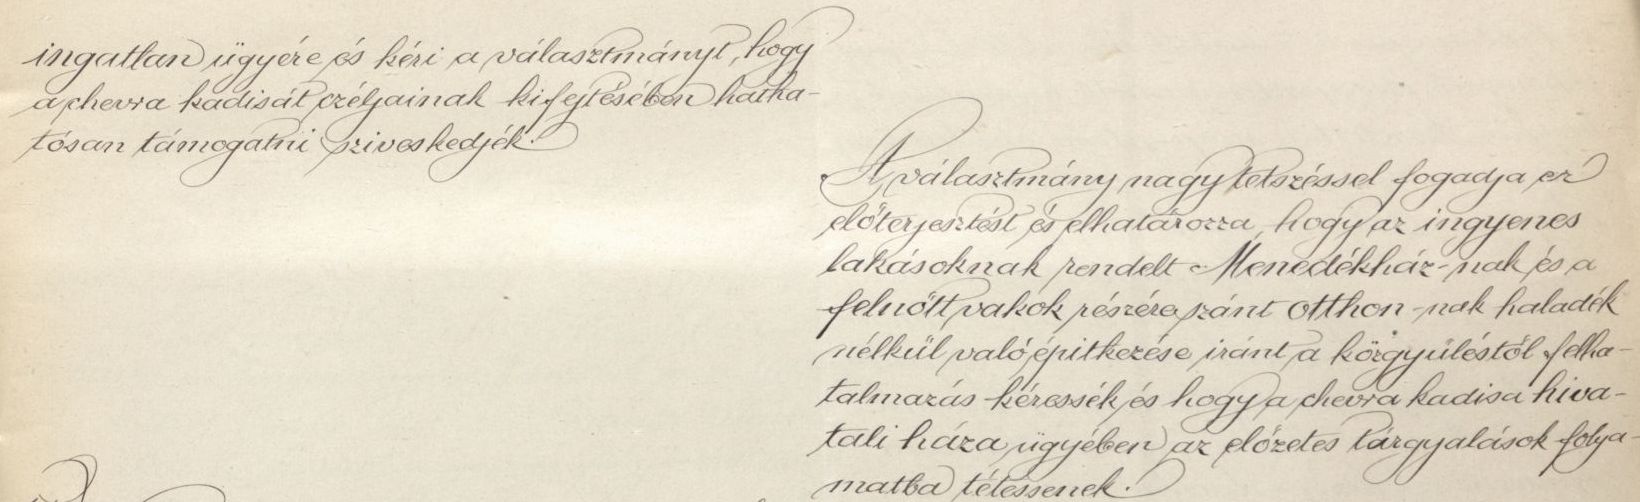 ingatlan ügyére és kéri a választmányt, hogy
a chevra kadisát czéljainak kifejtésében hatha-
tósan támogatni sziveskedjék.
A választmány nagy tetszéssel fogadja ez
előterjesztést és elhatározza, hogy az ingyenes
lakásoknak rendelt Menedékház-nak és a
felnőtt vakok részére szánt otthon-nak haladék
nélkül való épitkezése iránt a közgyüléstől felha-
talmazás kéressék és hogy a chevra kadisa hiva-
tali háza ügyében az előzetes tárgyalások folya-
matba tétessenek.